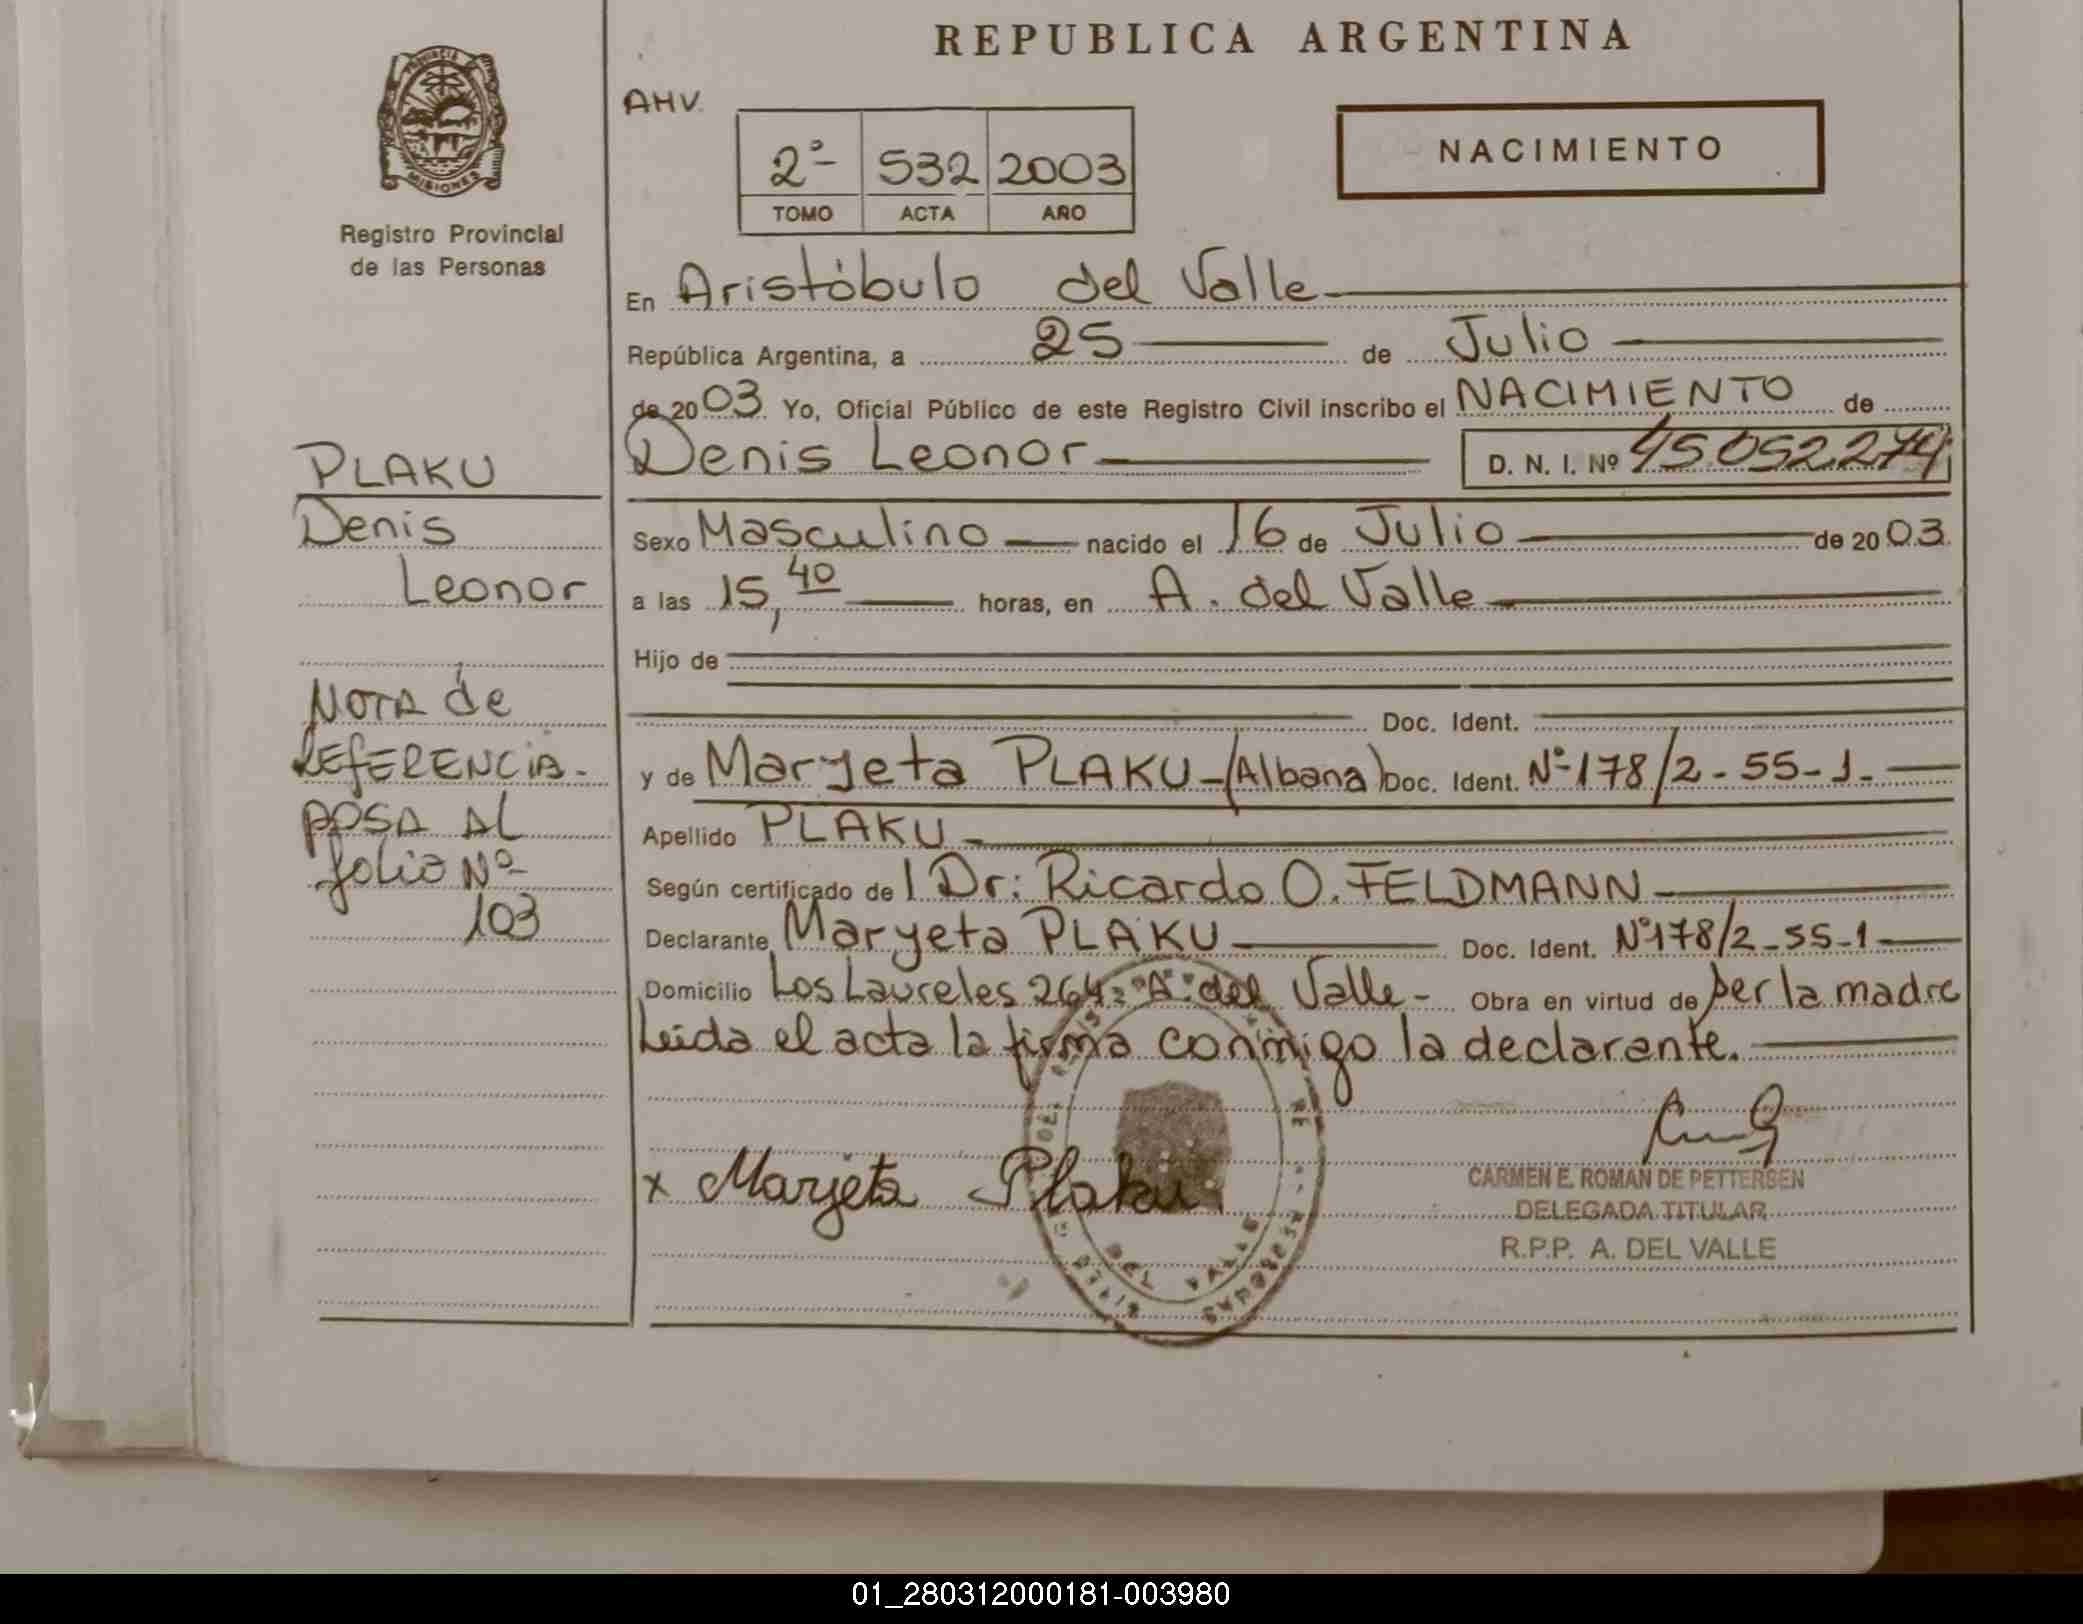 REPUBLICA ARGENTINA
PROVINCIA
MISIONES
Registro Provincial
de las Personas
AHV.
2º 532 2003
TOMO ACTA AÑO
NACIMIENTO
En Aristóbulo del Valle
República Argentina, a 25 de Julio
de 2003 Yo, Oficial Público de este Registro Civil inscribo el NACIMIENTO de
Denis Leonor D. N. I. Nº 45.052.274
Sexo Masculino nacido el 16 de Julio de 2003.
a las 15,40 horas, en A. del Valle
Hijo de
Doc. Ident.
y de Maryeta PLAKU-(Albana) Doc. Ident. Nº178/2-55-1-
Apellido PLAKU
Según certificado de l Dr: Ricardo O. FELDMANN
Declarante Maryeta PLAKU Doc. Ident. Nº178/2-55-1
Domicilio Los Laureles 264-"A" del Valle- Obra en virtud de ser la madre
Leída el acta la firma conmigo la declarante.
x Marjeta Plaku
CARMEN E. ROMAN DE PETTERSEN
DELEGADA TITULAR
R.P.P. A. DEL VALLE
DEL VALLE
PLAKU
Denis
Leonor
NOTA de
REFERENCIA-
PASA AL
folio Nº
103
01_280312000181-003980